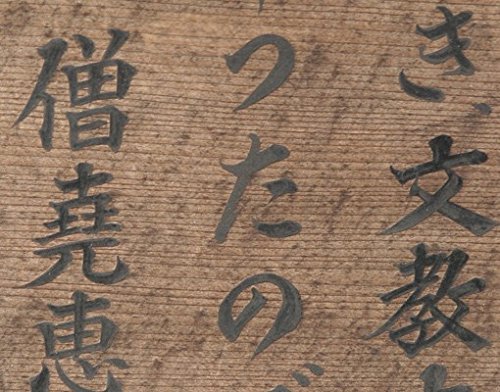 き文教
つたの
僧堯恵